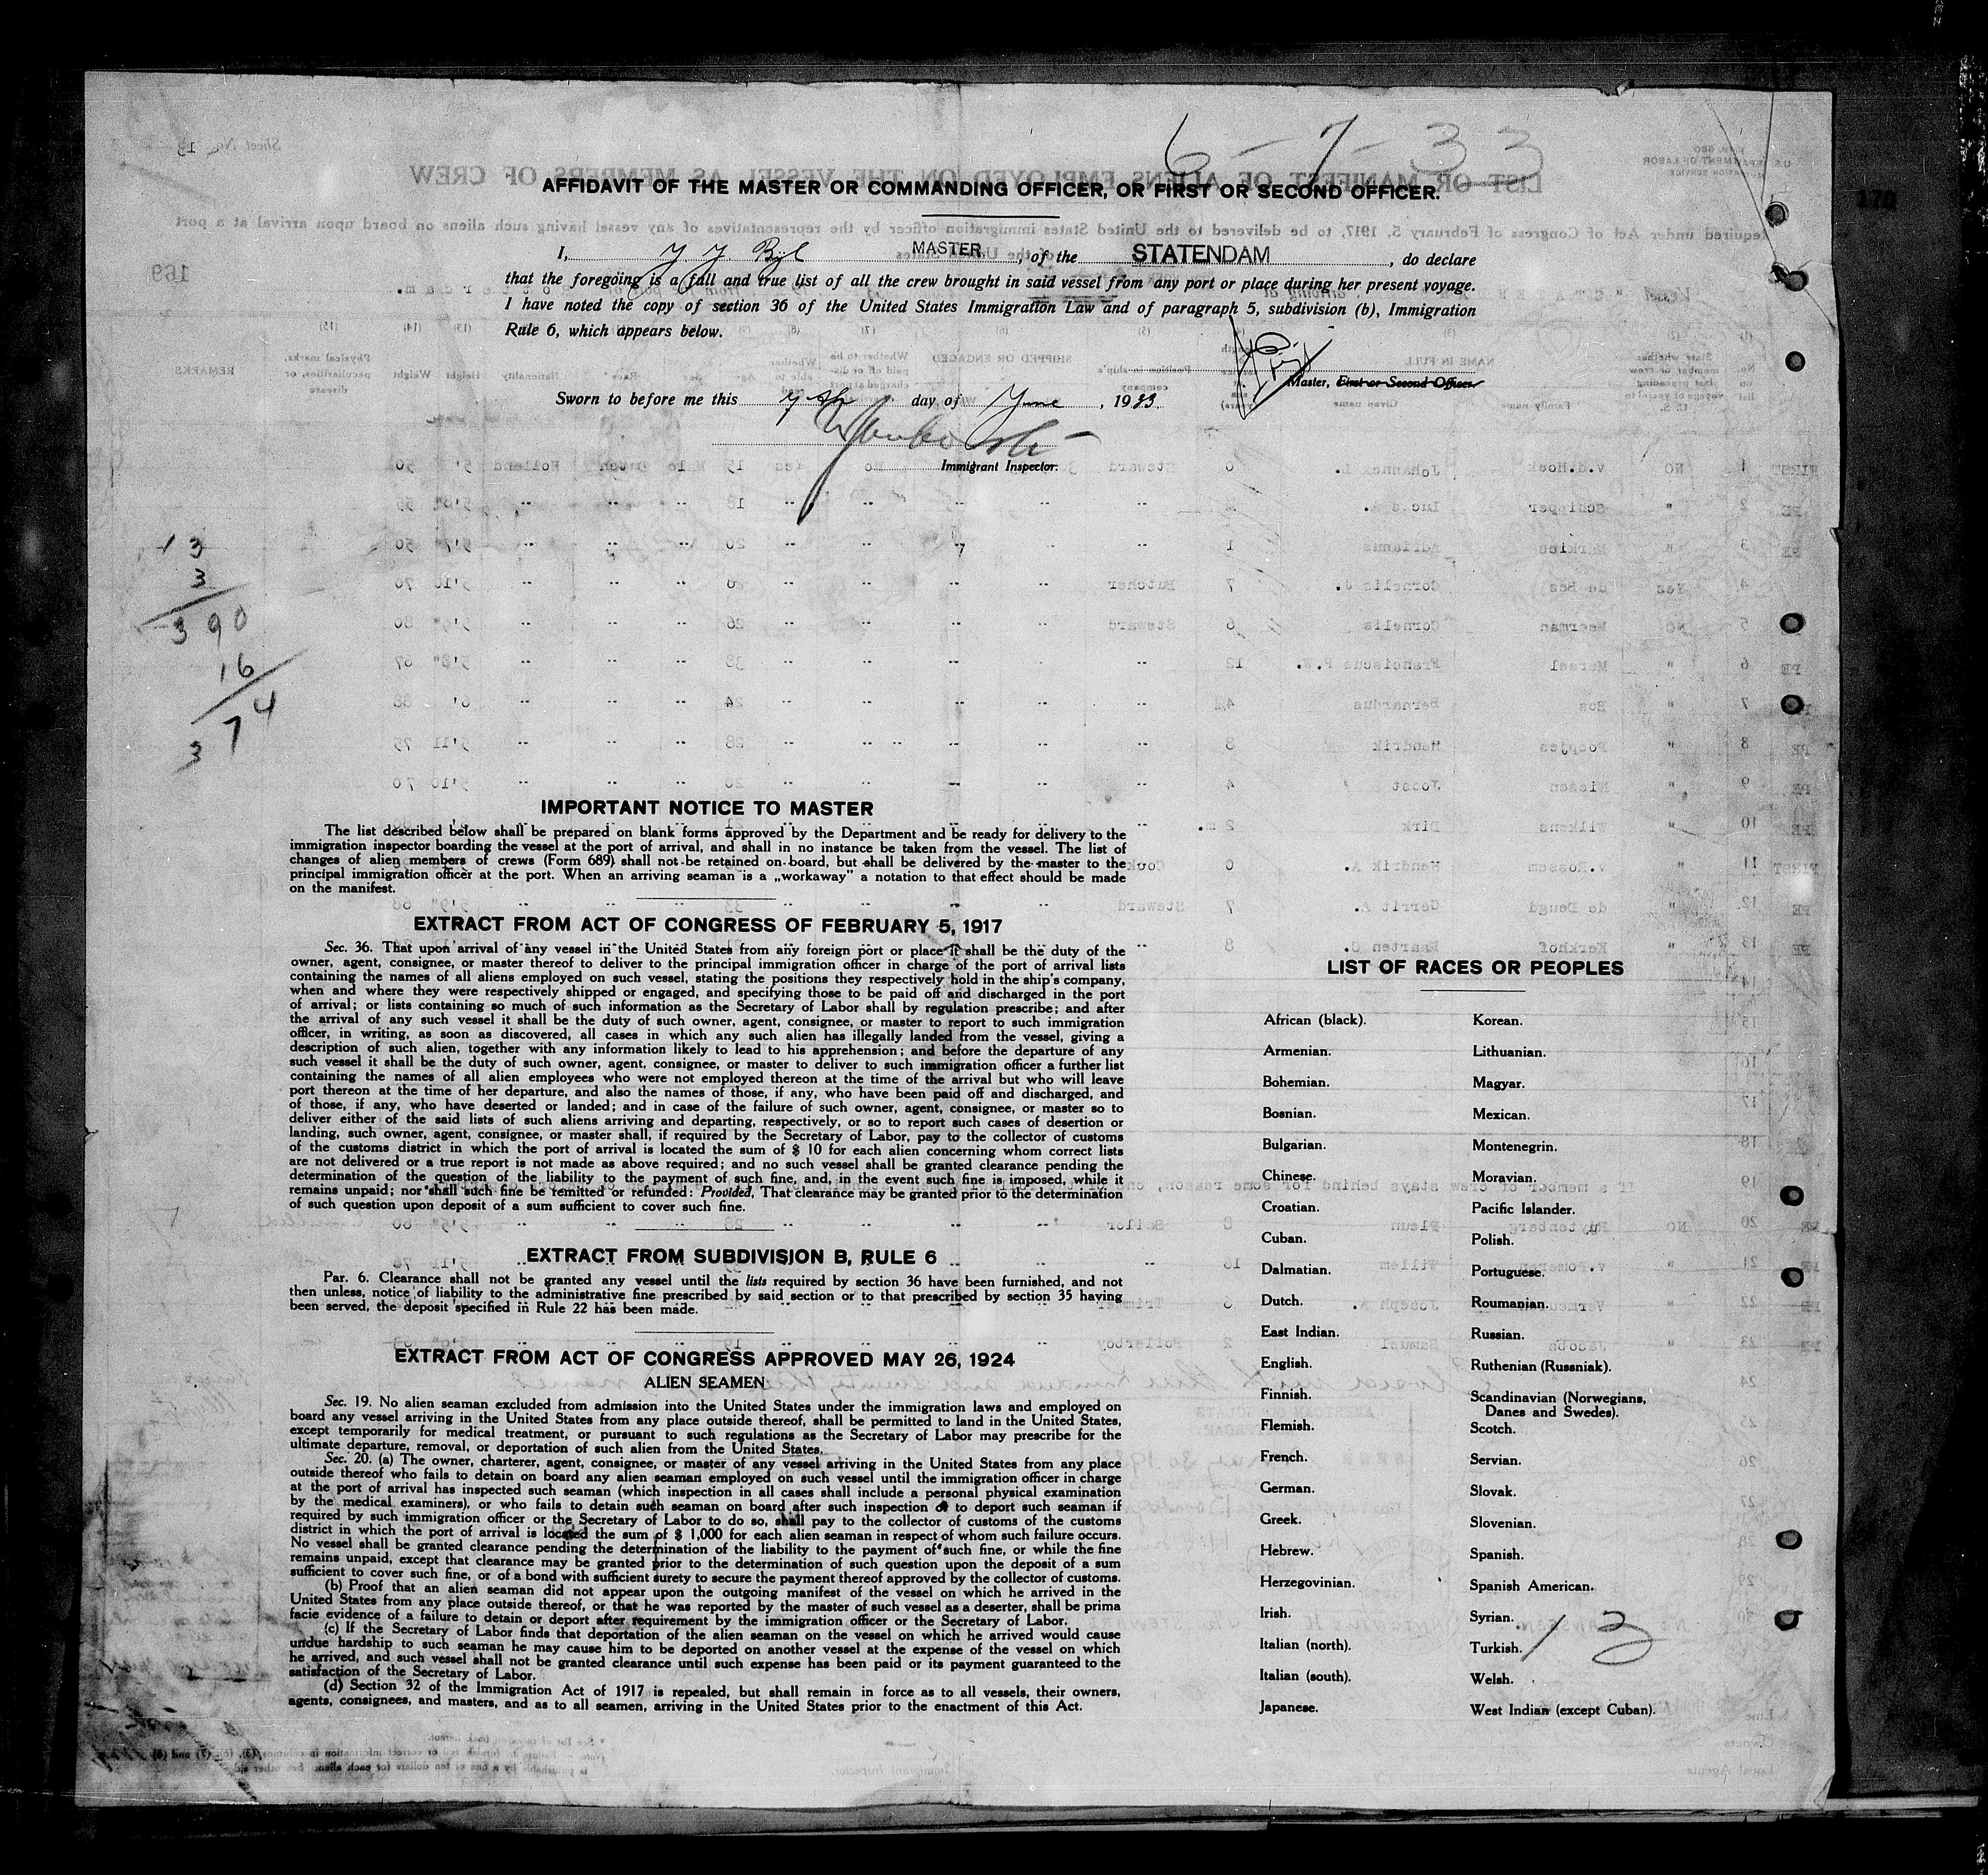 6-7-33
AFFIDAVIT OF THE MASTER OR COMMANDING OFFICER, OR FIRST OR SECOND OFFICER.
170
I, MASTER, of the STATENDAM, do declare
that the foregoing is a full and true list of all the crew brought in said vessel from any port or place during her present voyage.
I have noted the copy of section 36 of the United States Immigration Law and of paragraph 5, subdivision (b), Immigration
Rule 6, which appears below.
Master, First or Second Officer.
Sworn to before me this 7th day of June, 1933.
Immigrant Inspector.
13
3
390
16
374
IMPORTANT NOTICE TO MASTER
The list described below shall be prepared on blank forms approved by the Department and be ready for delivery to the
immigration inspector boarding the vessel at the port of arrival, and shall in no instance be taken from the vessel. The list of
changes of alien members of crews (Form 689) shall not be retained on board, but shall be delivered by the master to the
principal immigration officer at the port. When an arriving seaman is a „workaway" a notation to that effect should be made
on the manifest.
EXTRACT FROM ACT OF CONGRESS OF FEBRUARY 5, 1917
Sec. 36. That upon arrival of any vessel in the United States from any foreign port or place it shall be the duty of the
owner, agent, consignee, or master thereof to deliver to the principal immigration officer in charge of the port of arrival lists
containing the names of all aliens employed on such vessel, stating the positions they respectively hold in the ship's company,
when and where they were respectively shipped or engaged, and specifying those to be paid off and discharged in the port
of arrival; or lists containing so much of such information as the Secretary of Labor shall by regulation prescribe; and after
the arrival of any such vessel it shall be the duty of such owner, agent, consignee, or master to report to such immigration
officer, in writing, as soon as discovered, all cases in which any such alien has illegally landed from the vessel, giving a
description of such alien, together with any information likely to lead to his apprehension; and before the departure of any
such vessel it shall be the duty of such owner, agent, consignee, or master to deliver to such immigration officer a further list
containing the names of all alien employees who were not employed thereon at the time of the arrival but who will leave
port thereon at the time of her departure, and also the names of those, if any, who have been paid off and discharged, and
of those, if any, who have deserted or landed; and in case of the failure of such owner, agent, consignee, or master so to
deliver either of the said lists of such aliens arriving and departing, respectively, or so to report such cases of desertion or
landing, such owner, agent, consignee, or master shall, if required by the Secretary of Labor, pay to the collector of customs
of the customs district in which the port of arrival is located the sum of $ 10 for each alien concerning whom correct lists
are not delivered or a true report is not made as above required; and no such vessel shall be granted clearance pending the
determination of the question of the liability to the payment of such fine, and, in the event such fine is imposed, while it
remains unpaid; nor shall such fine be remitted or refunded: Provided, That clearance may be granted prior to the determination
of such question upon deposit of a sum sufficient to cover such fine.
EXTRACT FROM SUBDIVISION B, RULE 6
Par. 6. Clearance shall not be granted any vessel until the lists required by section 36 have been furnished, and not
then unless, notice of liability to the administrative fine prescribed by said section or to that prescribed by section 35 having
been served, the deposit specified in Rule 22 has been made.
EXTRACT FROM ACT OF CONGRESS APPROVED MAY 26, 1924
ALIEN SEAMEN
Sec. 19. No alien seaman excluded from admission into the United States under the immigration laws and employed on
board any vessel arriving in the United States from any place outside thereof, shall be permitted to land in the United States,
except temporarily for medical treatment, or pursuant to such regulations as the Secretary of Labor may prescribe for the
ultimate departure, removal, or deportation of such alien from the United States.
Sec. 20. (a) The owner, charterer, agent, consignee, or master of any vessel arriving in the United States from any place
outside thereof who fails to detain on board any alien seaman employed on such vessel until the immigration officer in charge
at the port of arrival has inspected such seaman (which inspection in all cases shall include a personal physical examination
by the medical examiners), or who fails to detain such seaman on board after such inspection or to deport such seaman if
required by such immigration officer or the Secretary of Labor to do so, shall pay to the collector of customs of the customs
district in which the port of arrival is located the sum of $ 1,000 for each alien seaman in respect of whom such failure occurs.
No vessel shall be granted clearance pending the determination of the liability to the payment of such fine, or while the fine
remains unpaid, except that clearance may be granted prior to the determination of such question upon the deposit of a sum
sufficient to cover such fine, or of a bond with sufficient surety to secure the payment thereof approved by the collector of customs.
(b) Proof that an alien seaman did not appear upon the outgoing manifest of the vessel on which he arrived in the
United States from any place outside thereof, or that he was reported by the master of such vessel as a deserter, shall be prima
facie evidence of a failure to detain or deport after requirement by the immigration officer or the Secretary of Labor.
(c) If the Secretary of Labor finds that deportation of the alien seaman on the vessel on which he arrived would cause
undue hardship to such seaman he may cause him to be deported on another vessel at the expense of the vessel on which
he arrived, and such vessel shall not be granted clearance until such expense has been paid or its payment guaranteed to the
satisfaction of the Secretary of Labor.
(d) Section 32 of the Immigration Act of 1917 is repealed, but shall remain in force as to all vessels, their owners,
agents, consignees, and masters, and as to all seamen, arriving in the United States prior to the enactment of this Act.
LIST OF RACES OR PEOPLES
African (black).
Armenian.
Bohemian.
Bosnian.
Bulgarian.
Chinese.
Croatian.
Cuban.
Dalmatian.
Dutch.
East Indian.
English.
Finnish.
Flemish.
French.
German.
Greek.
Hebrew.
Herzegovinian.
Irish.
Italian (north).
Italian (south).
Japanese.
Korean.
Lithuanian.
Magyar.
Mexican.
Montenegrin.
Moravian.
Pacific Islander.
Polish.
Portuguese.
Roumanian.
Russian.
Ruthenian (Russniak).
Scandinavian (Norwegians,
Danes and Swedes).
Scotch.
Servian.
Slovak.
Slovenian.
Spanish.
Spanish American.
Syrian.
Turkish.
Welsh.
West Indian (except Cuban).
13